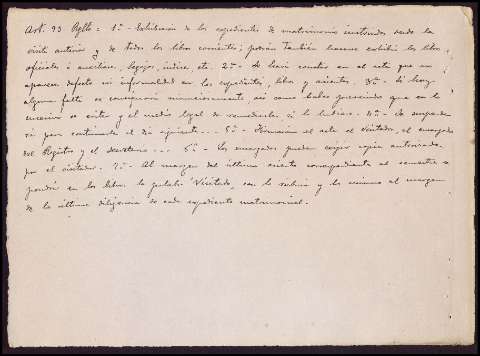 Art. 93 Rgto = 1º - Exhibicion de los expedientes de matrimonio instruidos desde la
visita anterior y de todos los libros corrientes; podrán tambien hacerse exhibir los libros
oficiales ó auxiliares, legajos, indices etc. 2º - Se hará constar en el acta que no
aparecen defecto ni informalidad en los expedientes, libros y asientos. 3º - Si hay
alguna falta se consignará minuciosamente así como haber prevenido que en lo
sucesivo se evite y el medio legal de remediarla, si lo hubiere. 4º - Se suspende
rá para continuarla el dia siguiente... 5º - Firmarán el acta el Visitador, el encargado
del Registro y el Secretario... 6º - Los encargados pueden exigir copia autorizada
por el visitador. 7º - Al margen del último asiento correspondiente al semestre se
pondrá en los libros la palabra Visitado, con la rúbrica y lo mismo al margen
de la última diligencia de cada expediente matrimonial.